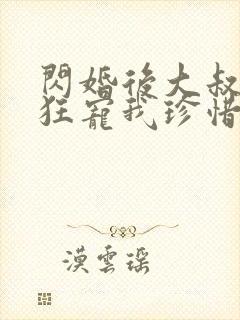 閃婚後大叔
狂寵我珍惜
漠雲瑶